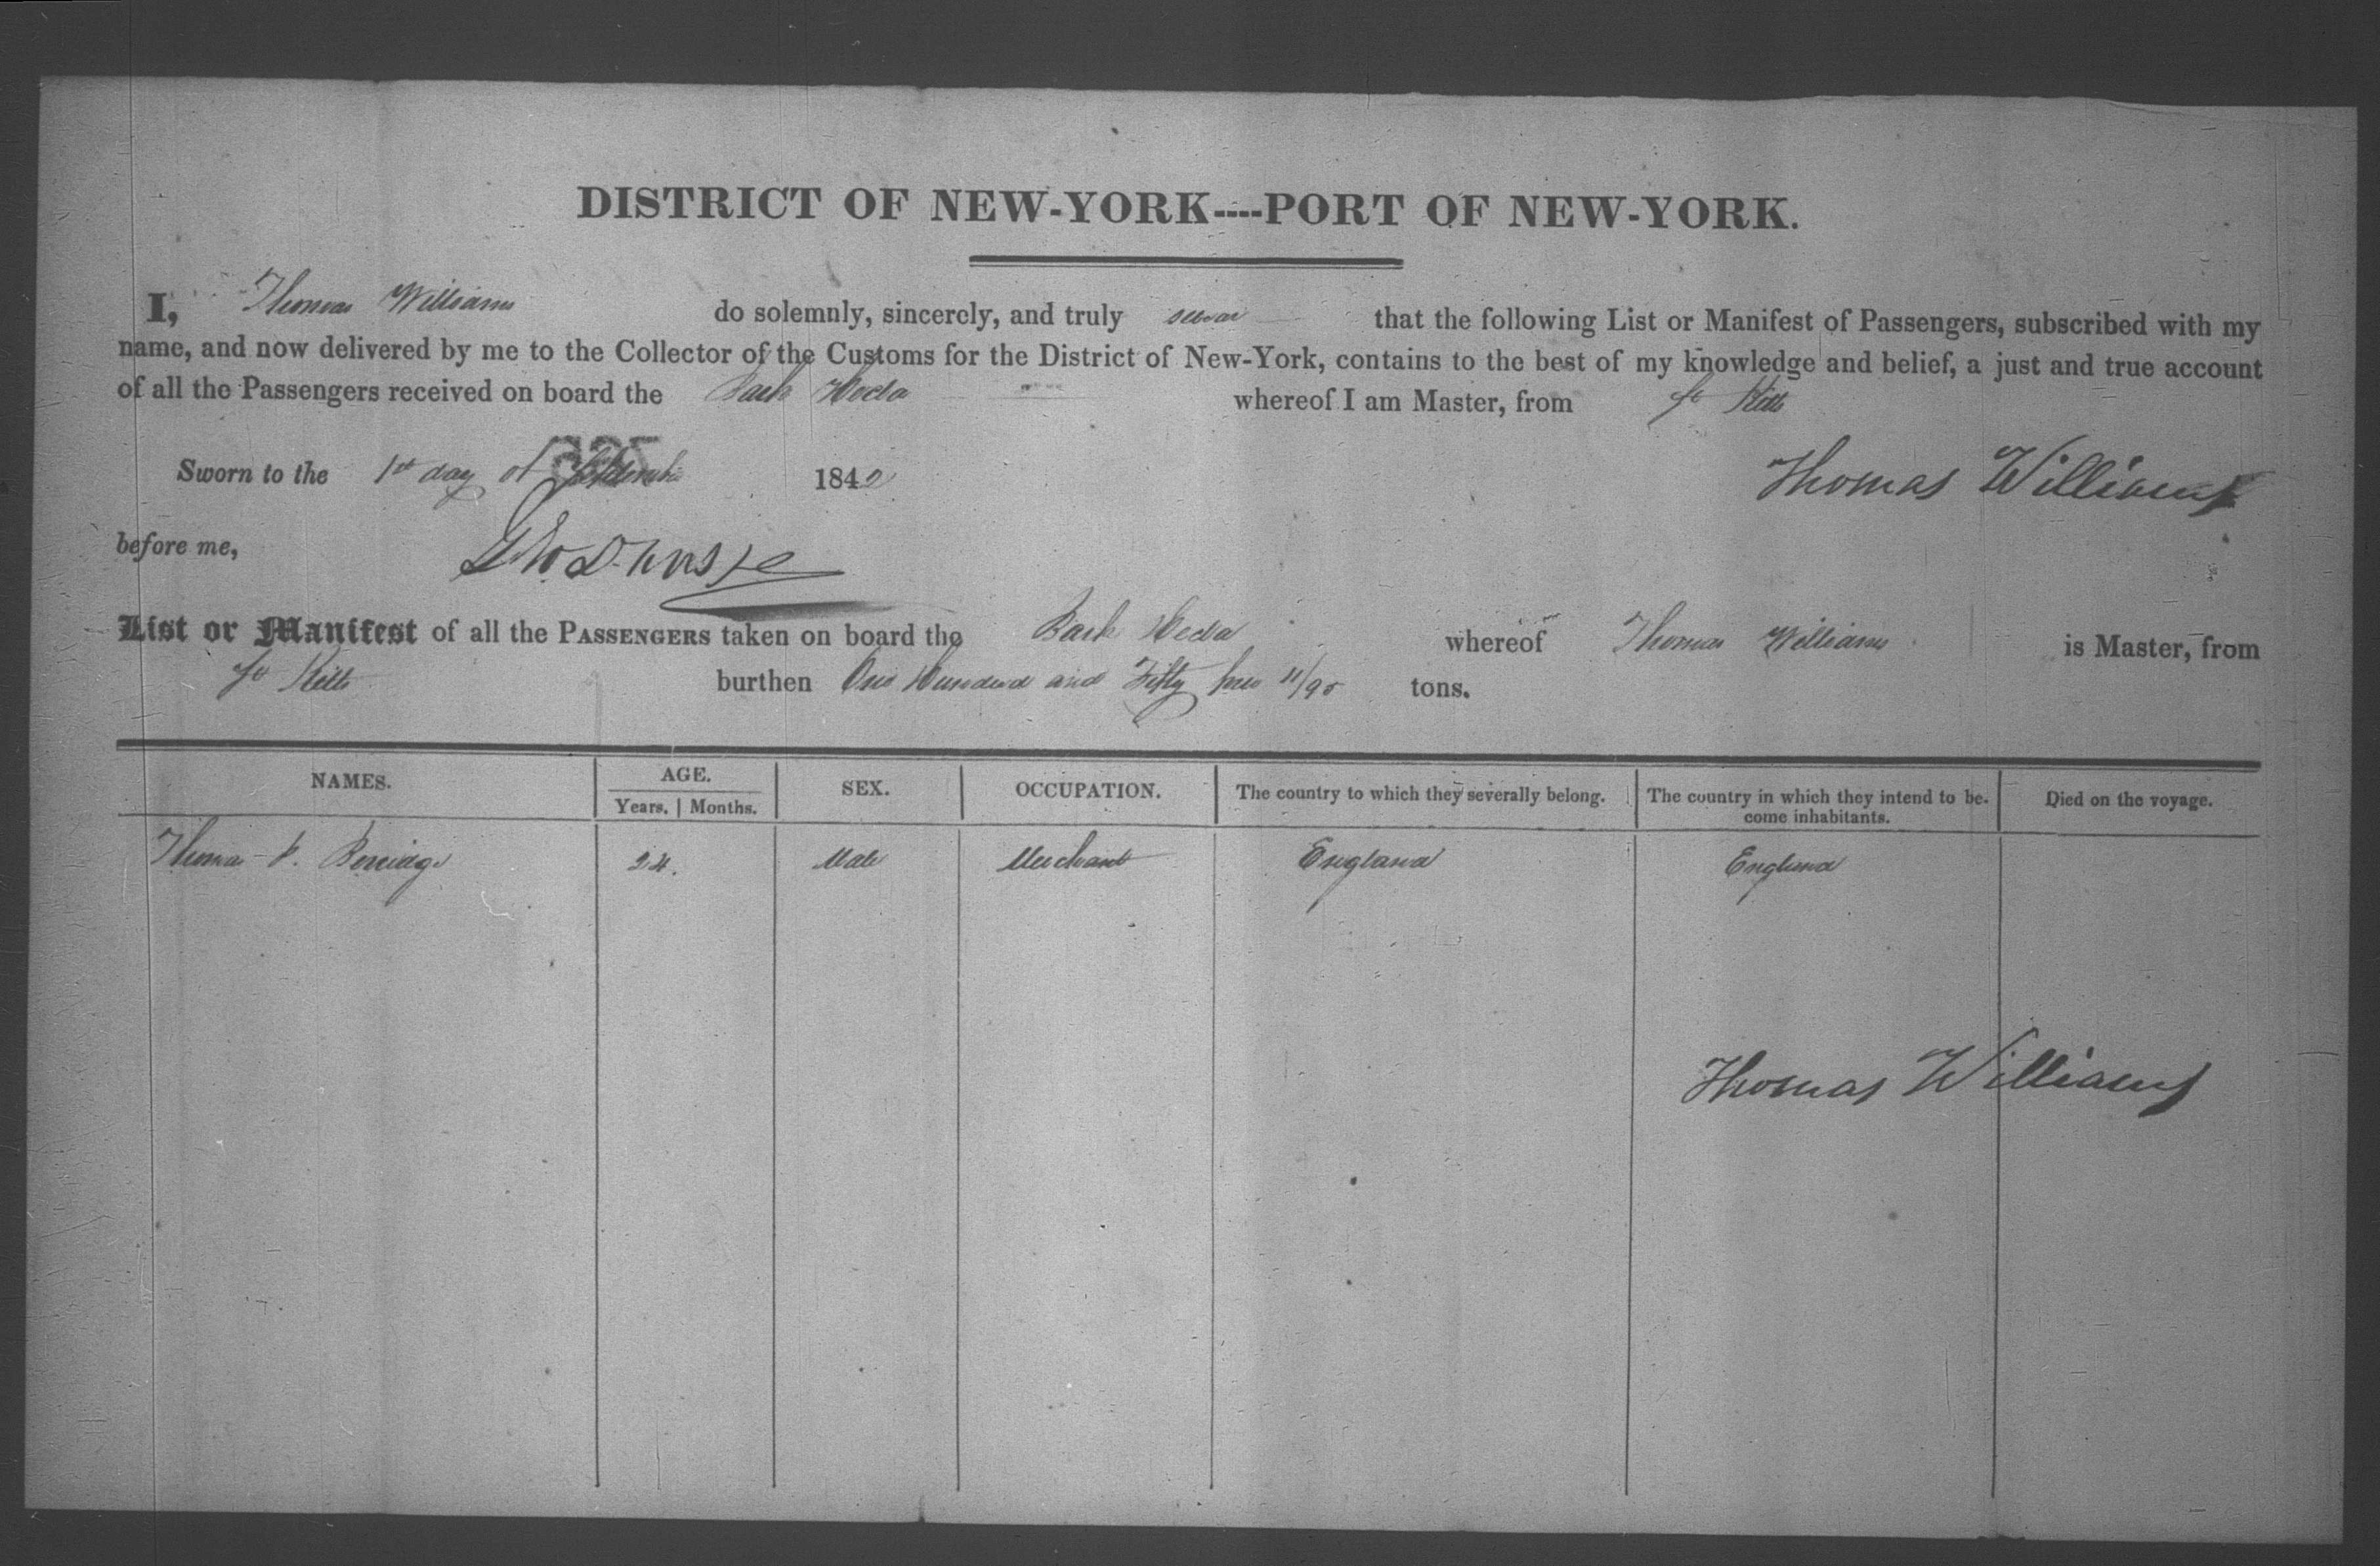 DISTRICT OF NEW-YORK----PORT OF NEW-YORK.
I, Thomas Williams do solemnly, sincerely, and truly swear that the following List or Manifest of Passengers, subscribed with my
name, and now delivered by me to the Collector of the Customs for the District of New-York, contains to the best of my knowledge and belief, a just and true account
of all the Passengers received on board the Bark Hecla whereof I am Master, from St Kitts
Sworn to the 1st day of September 1842
Thomas Williams
before me,
List or Manifest of all the PASSENGERS taken on board the Bark Hecla whereof Thomas Williams is Master, from
St Kitts burthen One Hundred and Fifty 11/95 tons.
NAMES. AGE. SEX. OCCUPATION. The country to which they severally belong. The country in which they intend to be- Died on the voyage.
Years. Months. come inhabitants.
Thomas Berridge 24. Male Merchant England England
Thomas Williams